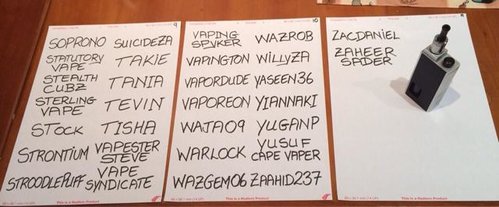 SOPRONO
STATUTORY
VAPE
STEALTH
CUBZ
STERLING
VAPE
STOCK
STRONTIUM
STROODLEPUFF
SUICIDEZA
TAKIE
TANIA
TEVIN
TISHA
VAPESTER
STEVE
VAPE
SYNDICATE
VAPING
SPYKER
VAPINGTON
VAPORDUDE
VAPOREON
WAJA09
WARLOCK
WAZGEM06
WAZROB
WILLYZA
YASEEN36
YIANNAKI
YUGANP
YUSUF
CAPE VAPER
ZAAHID237
ZACDANIEL
ZAHEER
SPIDER